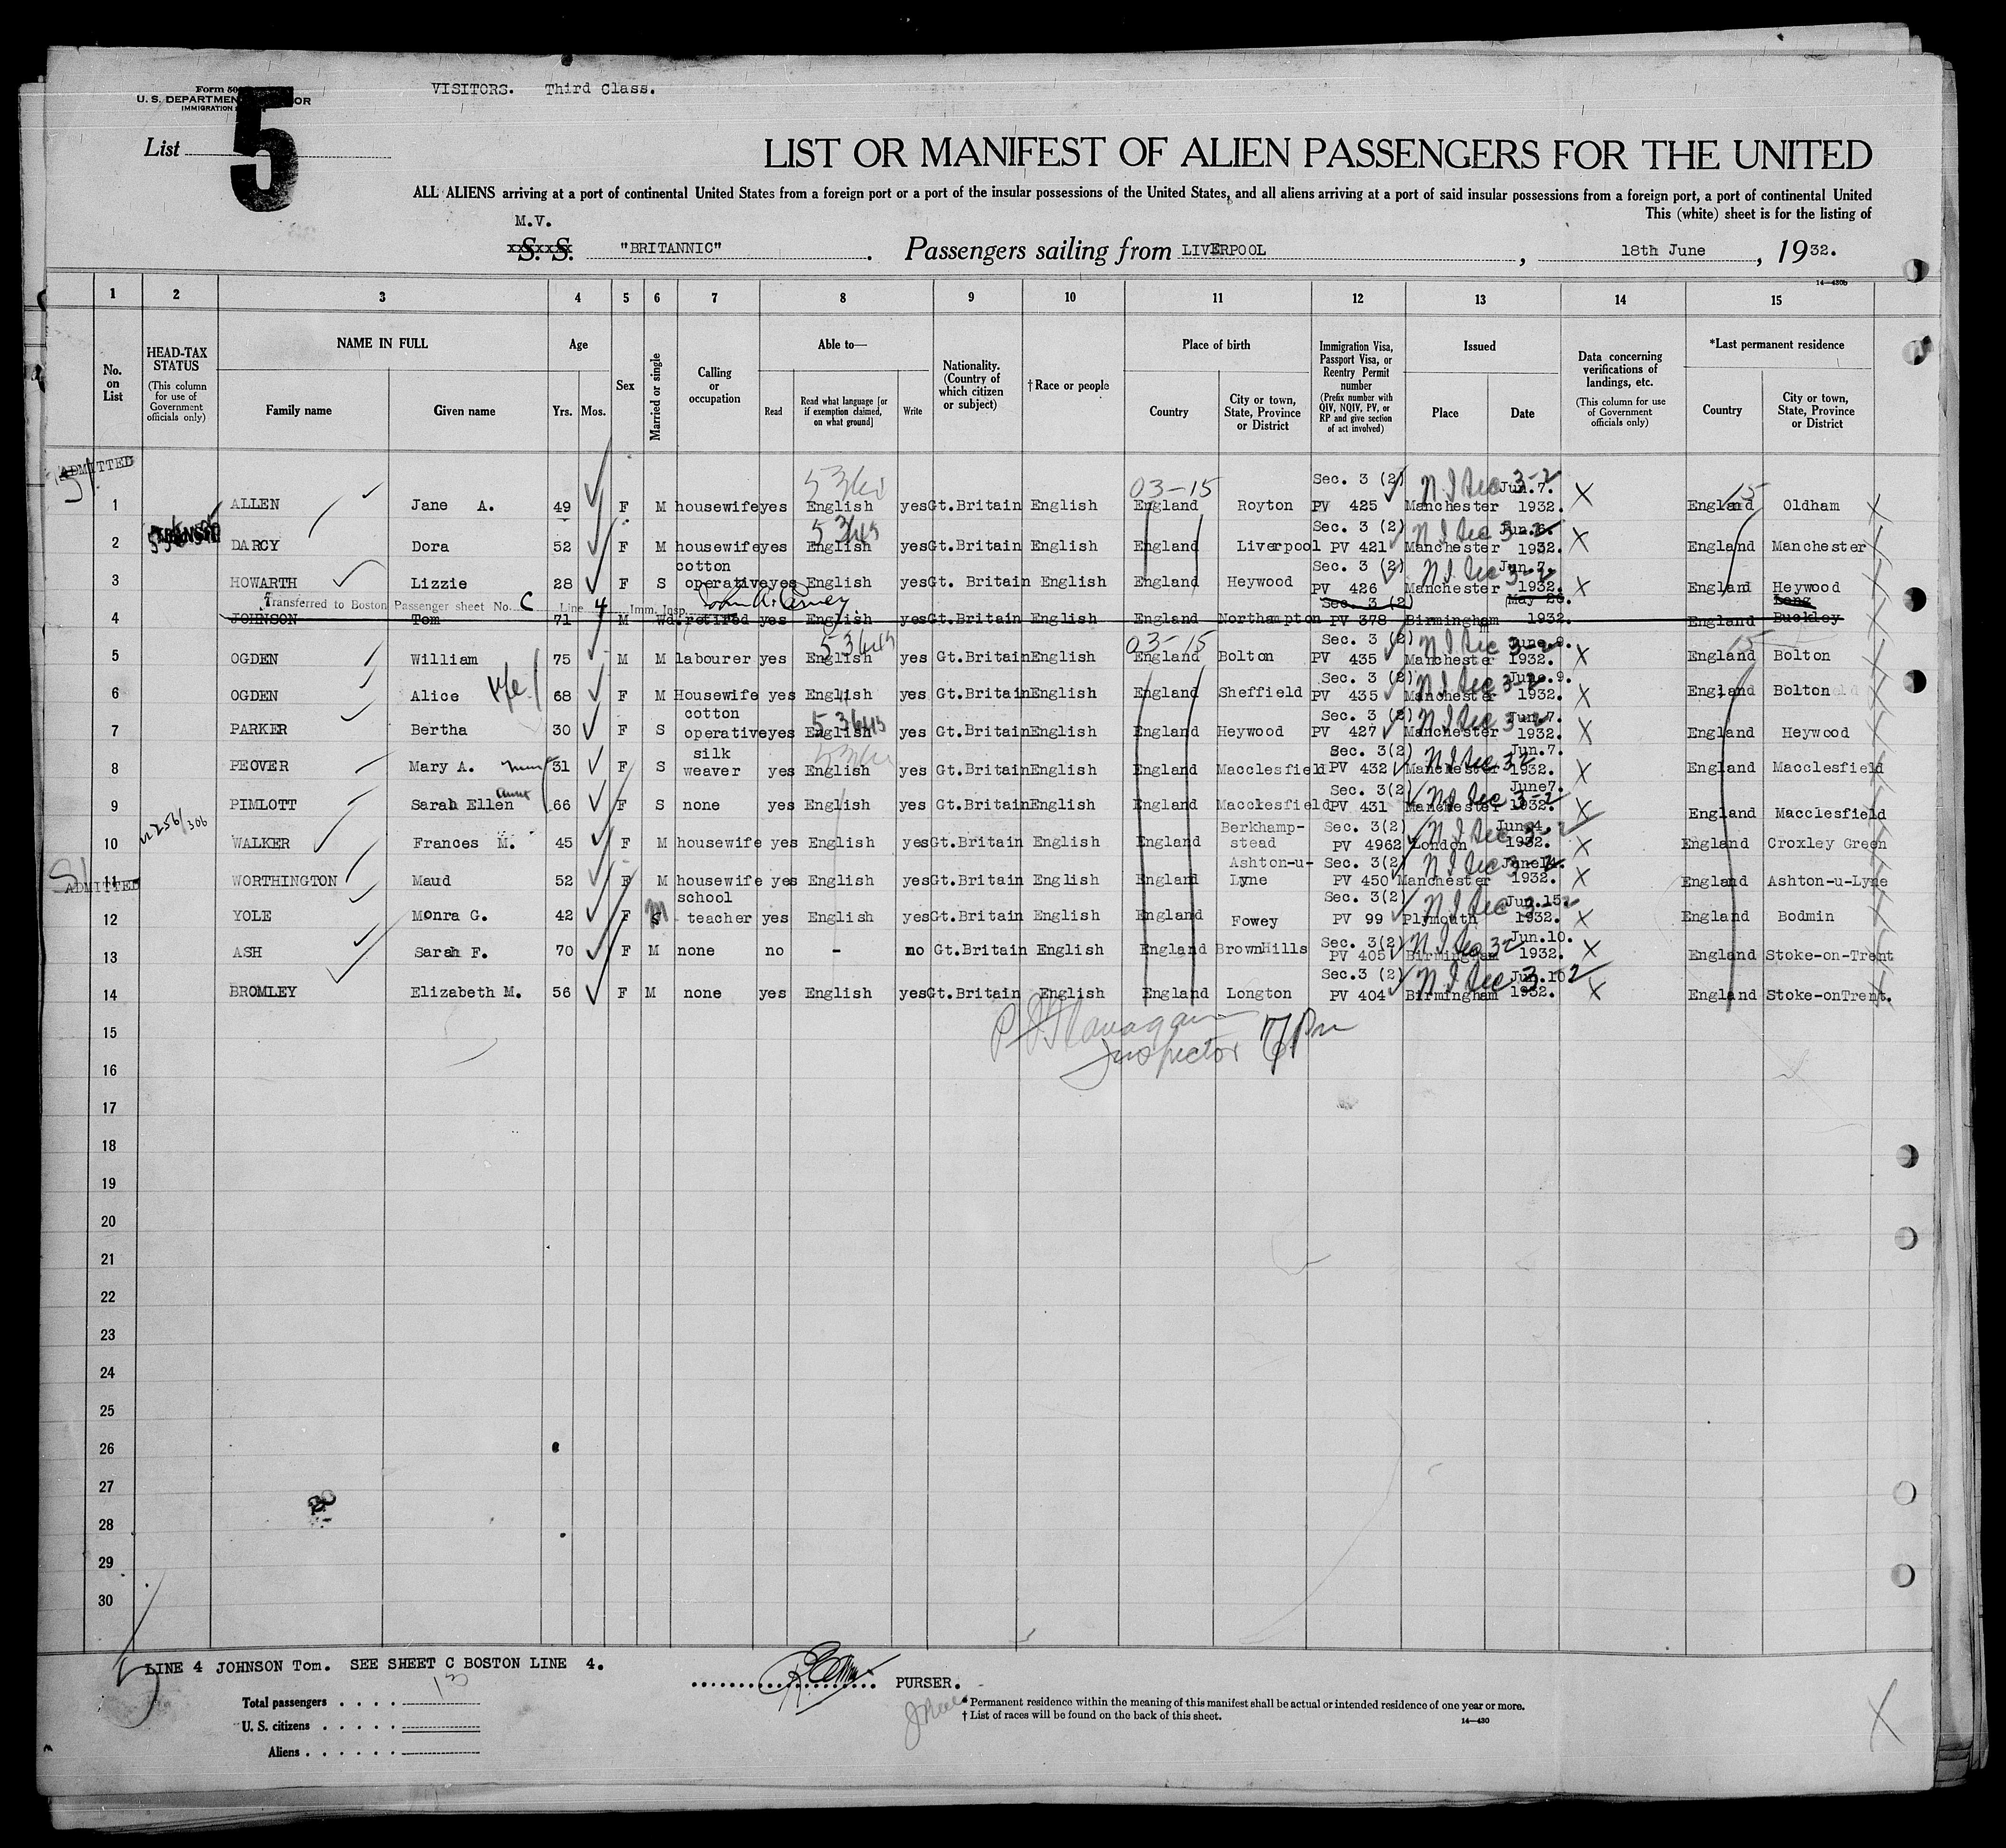 VISITORS. Third Class.
Form 50
U. S. DEPARTMEN OR
IMMIGRATION
List 5
LIST OR MANIFEST OF ALIEN PASSENGERS FOR THE UNITED
ALL ALIENS arriving at a port of continental United States from a foreign port or a port of the insular possessions of the United States, and all aliens arriving at a port of said insular possessions from a foreign port, a port of continental United
This (white) sheet is for the listing of
M.V.
S. S. "BRITANNIC" . Passengers sailing from LIVERPOOL , 18th June , 1932.
14—430b
1 2 3 4 5 6 7 8 9 10 11 12 13 14 15
No. on List
HEAD-TAX STATUS (This column for use of Government officials only)
NAME IN FULL
Family name Given name
Age
Yrs. Mos.
Sex
Married or single
Calling or occupation
Able to—
Read Read what language [or if exemption claimed, on what ground] Write
Nationality. (Country of which citizen or subject)
†Race or people
Place of birth
Country City or town, State, Province or District
Immigration Visa, Passport Visa, or Reentry Permit number (Prefix number with QIV, NQIV, PV, or RP and give section of act involved)
Issued
Place Date
Data concerning verifications of landings, etc. (This column for use of Government officials only)
*Last permanent residence
Country City or town, State, Province or District
ADMITTED
03-15 15
1 ALLEN Jane A. 49 F M housewife yes English yes Gt.Britain English England Royton Sec. 3 (2) PV 425 Manchester Jun.7. 1932. England Oldham
2 DARCY Dora 52 F M housewife yes English yes Gt.Britain English England Liverpool Sec. 3 (2) PV 421 Manchester 1932. England Manchester
3 HOWARTH Lizzie 28 F S cotton operative yes English yes Gt. Britain English England Heywood Sec. 3 (2) PV 426 Manchester Jun.7. 1932. England Heywood
Transferred to Boston Passenger sheet No. C Line 4 Imm. Insp.
4 JOHNSON Tom 71 M Wd. retired yes English yes Gt.Britain English England Northampton Sec. 3 (2) PV 378 Birmingham May 26. 1932. England Long Buckley
03-15 15
5 OGDEN William 75 M M labourer yes English yes Gt.Britain English England Bolton Sec. 3 (2) PV 435 Manchester June.9. 1932. England Bolton
6 OGDEN Alice 68 F M Housewife yes English yes Gt.Britain English England Sheffield Sec. 3 (2) PV 435 Manchester June.9. 1932. England Bolton
7 PARKER Bertha 30 F S cotton operative yes English yes Gt.Britain English England Heywood Sec. 3 (2) PV 427 Manchester Jun.7. 1932. England Heywood
8 PEOVER Mary A. 31 F S silk weaver yes English yes Gt.Britain English England Macclesfield Sec. 3(2) PV 432 Manchester Jun.7. 1932. England Macclesfield
9 PIMLOTT Sarah Ellen aunt 66 F S none yes English yes Gt.Britain English England Macclesfield Sec. 3(2) PV 431 Manchester June7. 1932. England Macclesfield
10 WALKER Frances M. 45 F M housewife yes English yes Gt.Britain English England Berkhamp-stead Sec. 3(2) PV 4962 London June4. 1932. England Croxley Green
ADMITTED
11 WORTHINGTON Maud 52 F M housewife yes English yes Gt.Britain English England Ashton-u-Lyne Sec. 3(2) PV 450 Manchester June14. 1932. England Ashton-u-Lyne
12 YOLE Monra G. 42 F M school teacher yes English yes Gt.Britain English England Fowey Sec. 3(2) PV 99 Plymouth Jun.15. 1932. England Bodmin
13 ASH Sarah F. 70 F M none no - no Gt.Britain English England BrownHills Sec. 3(2) PV 405 Birmingham Jun.10. 1932. England Stoke-on-Trent
14 BROMLEY Elizabeth M. 56 F M none yes English yes Gt.Britain English England Longton Sec.3 (2) PV 404 Birmingham Jun.10 1932. England Stoke-onTrent.
P Flanagan
Inspector
15
16
17
18
19
20
21
22
23
24
25
26
27
28
29
30
LINE 4 JOHNSON Tom. SEE SHEET C BOSTON LINE 4.
PURSER.
Total passengers . . . . 13
U. S. citizens . . . . .
Aliens . . . . . .
* Permanent residence within the meaning of this manifest shall be actual or intended residence of one year or more.
† List of races will be found on the back of this sheet.
14—430